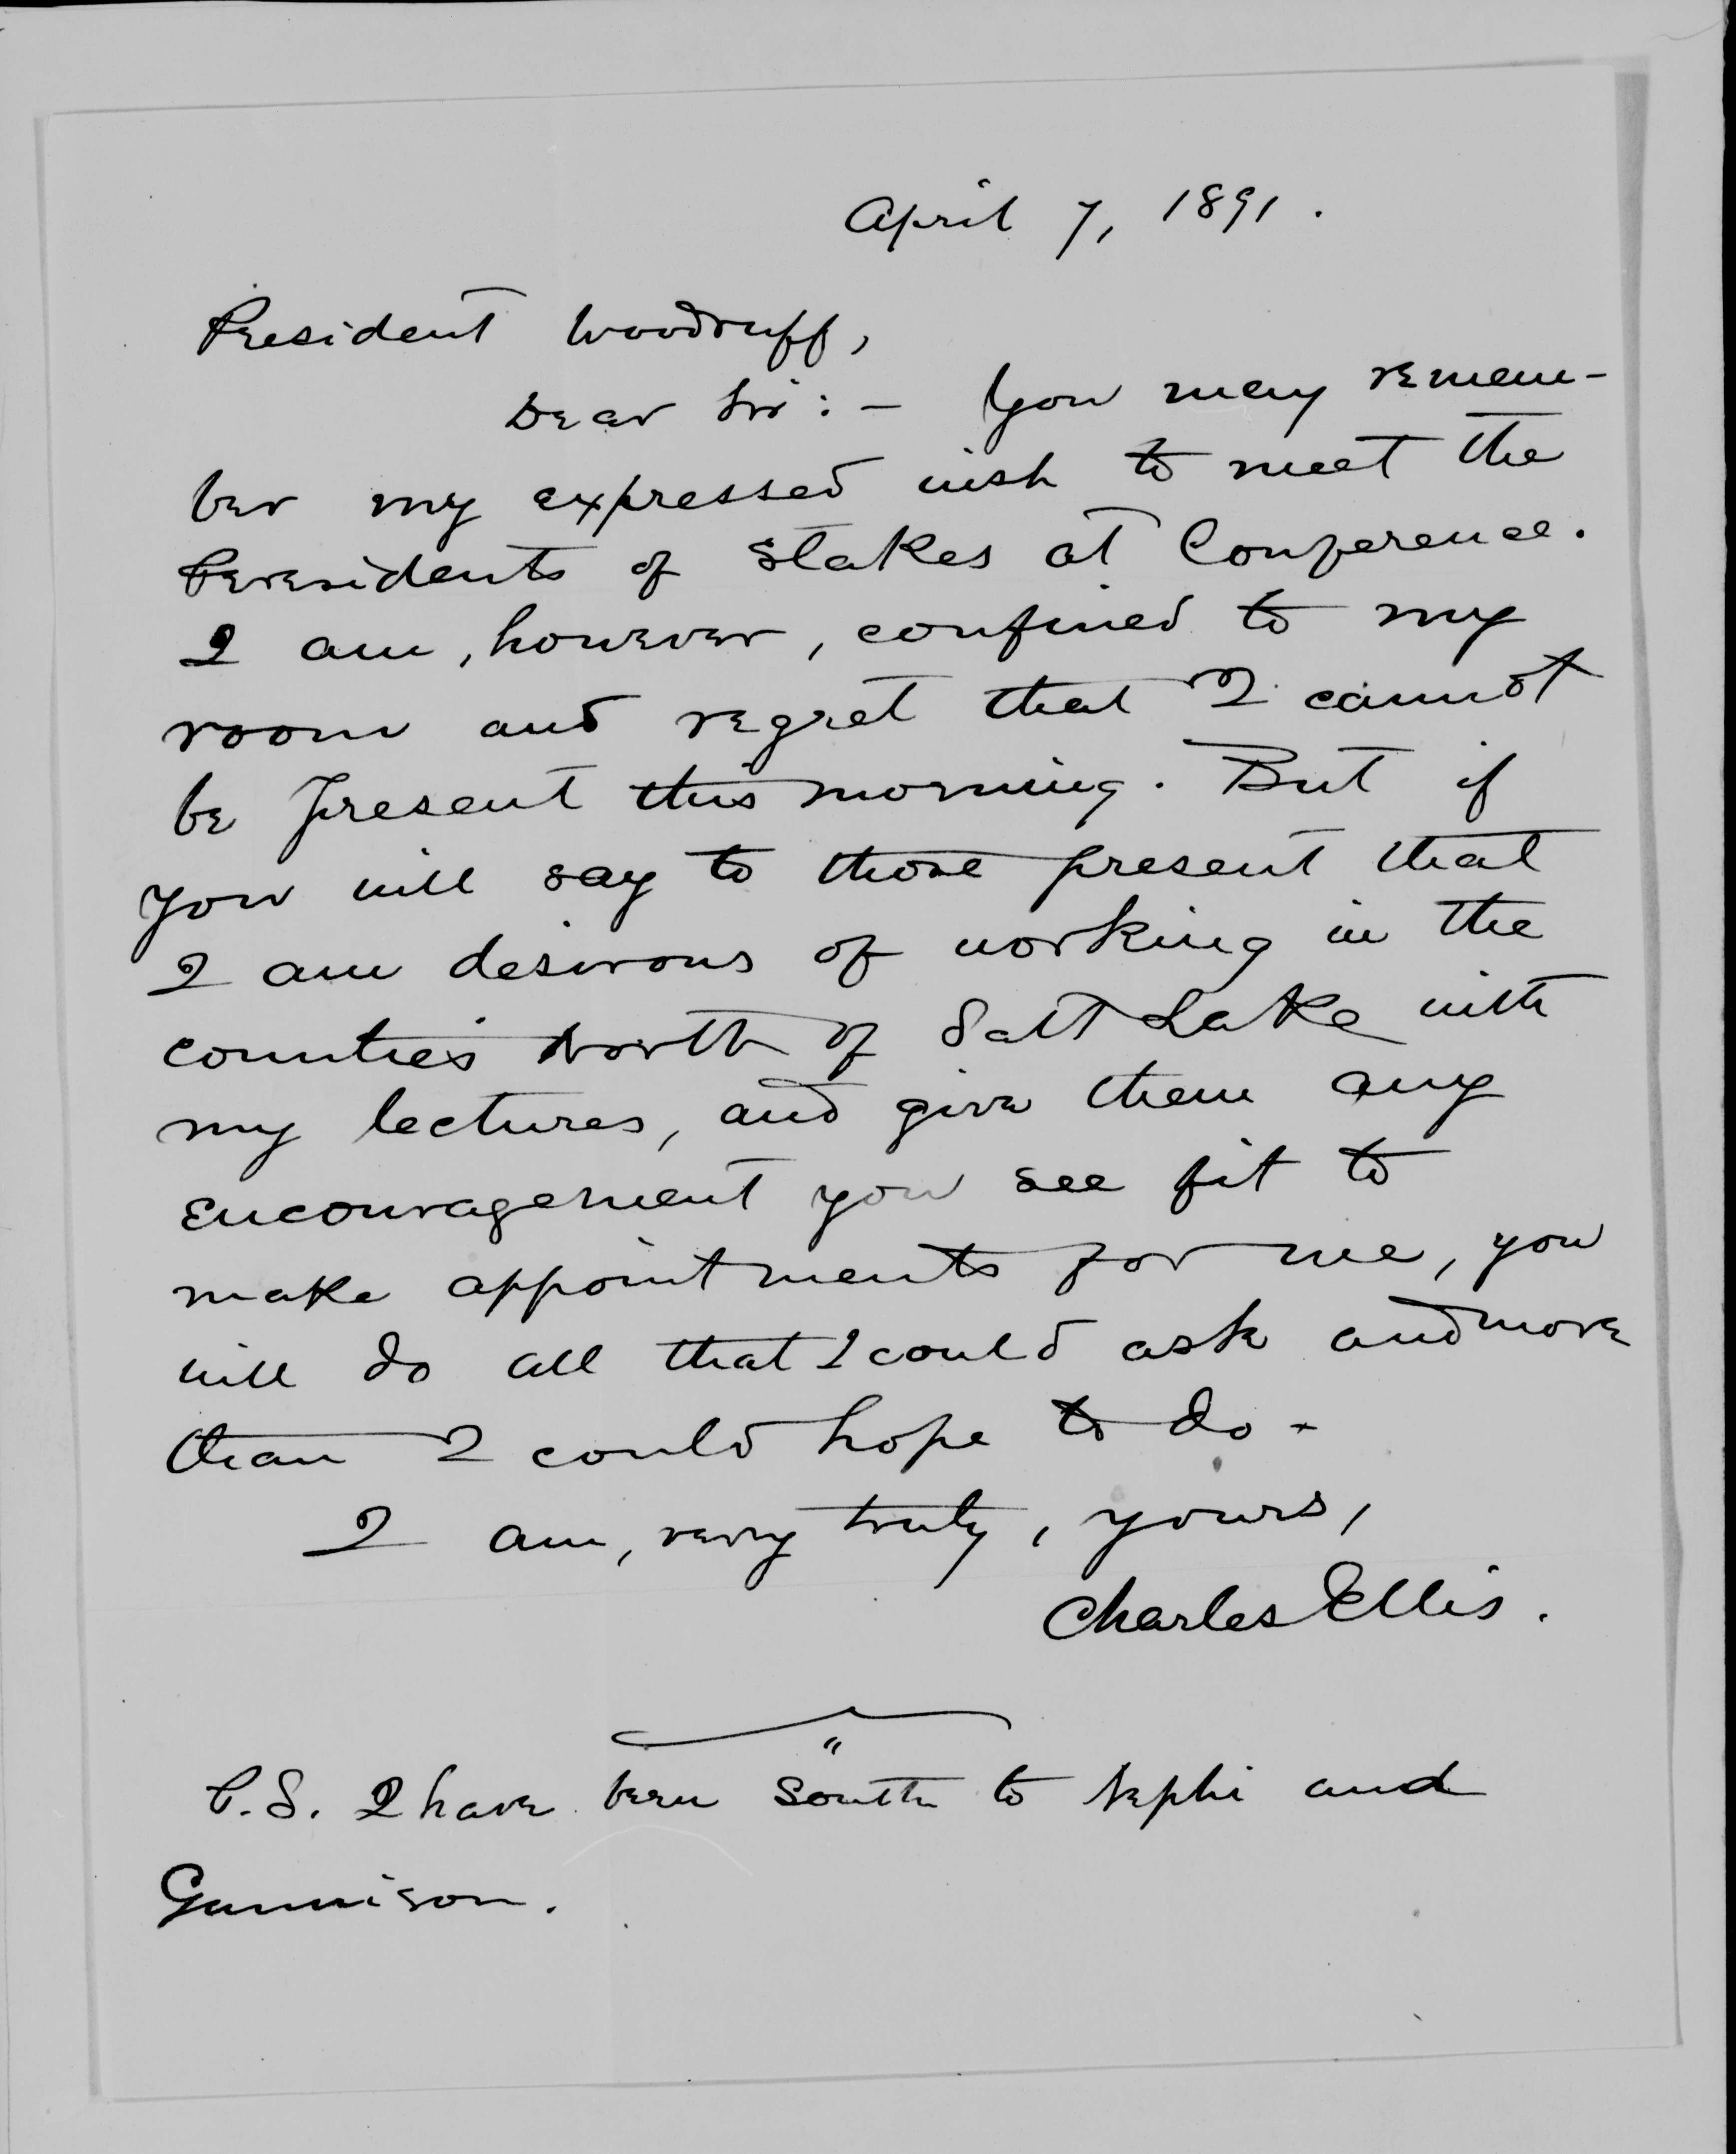 April 7, 1891.
President Woodruff,
Dear Sir:- You may remem-
ber my expressed wish to meet the
Presidents of Stakes at Conference.
I am, however, confined to my
room and regret that I cannot
be present this morning. But if
you will say to those present that
I am desirous of working in the
counties North of Salt Lake with
my lectures, and give them any
encouragement you see fit to
make appointments for me, you
will do all that I could ask and more
than I could hope to do.
I am, very truly, yours,
Charles Ellis.
"
P.S. I have been South to Nephi and
Gunnison.